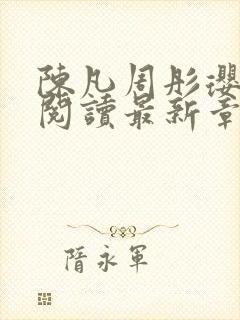 陳凡周彤瓔
閱讀最新章
隋永軍